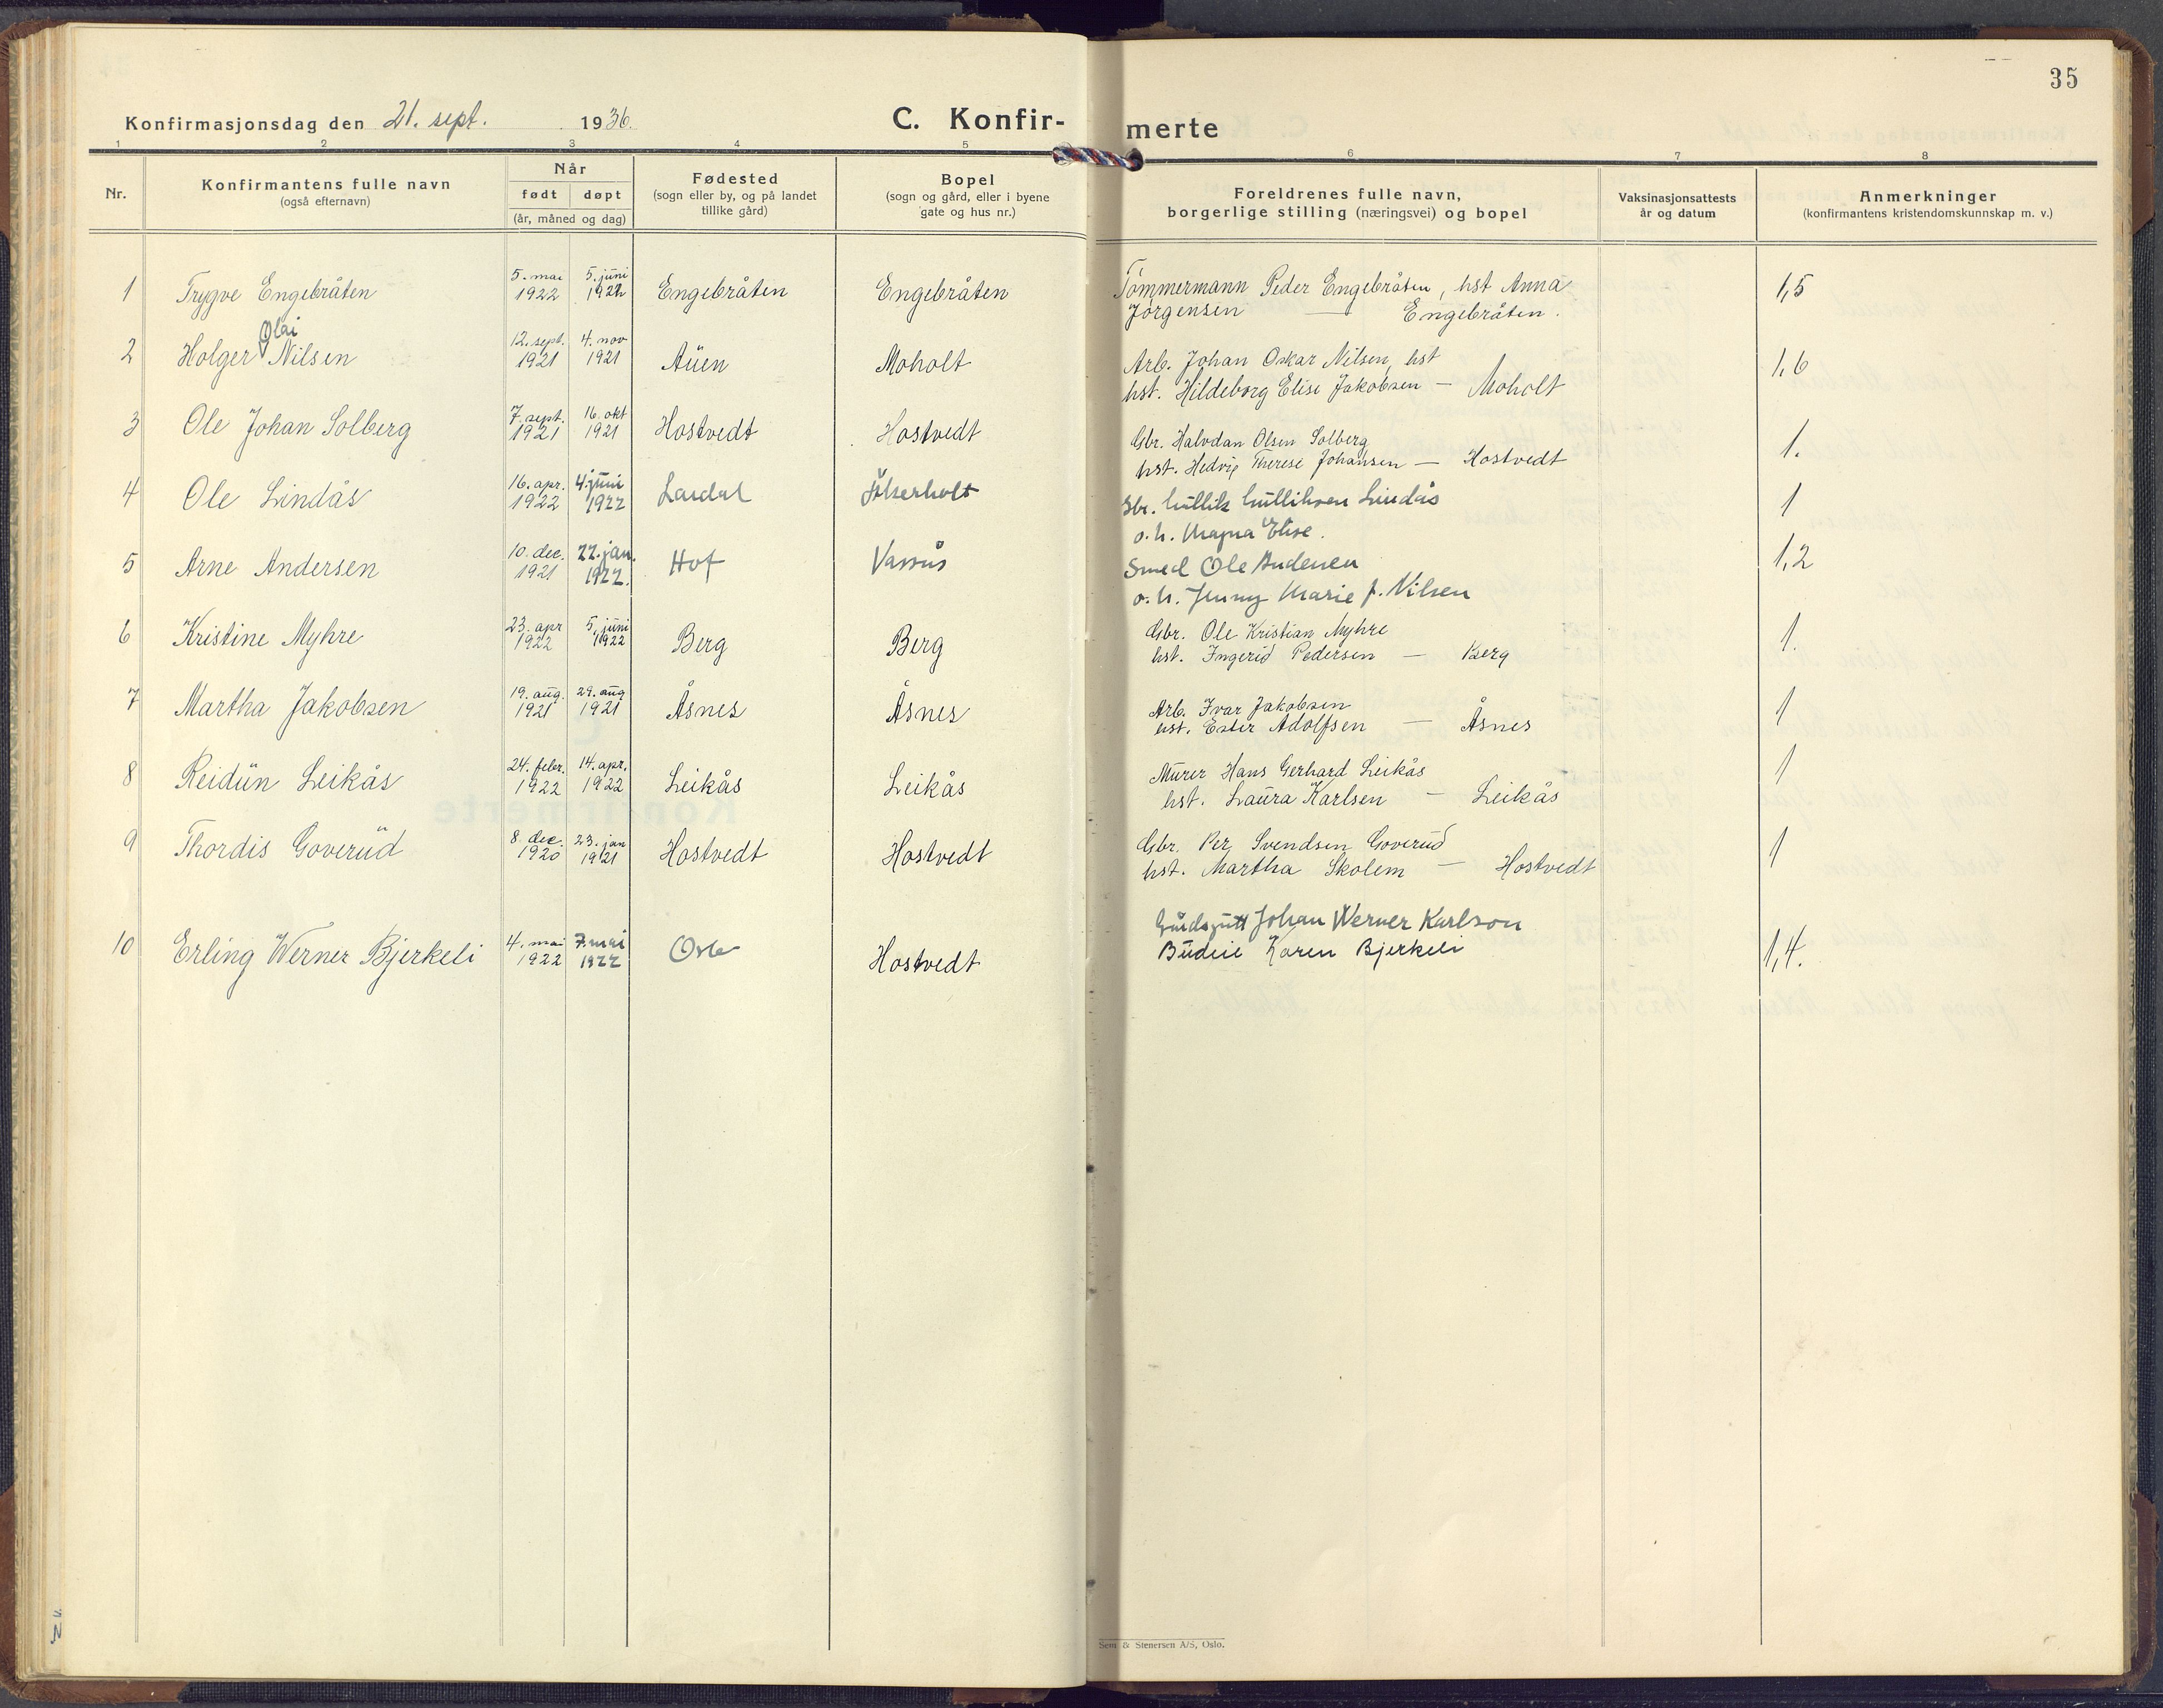 35
Konfirmasjonsdag den 21. sept. 1936.
C. Konfirmerte
1 2 3 4 5 6 7 8
Nr.
Konfirmantens fulle navn
(også efternavn)
Når
født døpt
(år, måned og dag)
Fødested
(sogn eller by, og på landet
tillike gård)
Bopel
(sogn og gård, eller i byene
gate og hus nr.)
Foreldrenes fulle navn,
borgerlige stilling (næringsvei) og bopel
Vaksinasjonsattests
år og datum
Anmerkninger
(konfirmantens kristendomskunnskap m. v.)
1 Trygve Engebråten 5. mai 1922 5. juni 1922 Engebråten Engebråten Tømmermann Peder Engebråten, hst Anna 1,5
Jørgensen — Engebråten.
2 Holger Olai Nilsen 12. sept. 1921 4. nov 1921 Auen Moholt Arb. Johan Oskar Nilsen, hst 1,6
hst. Hildeborg Elise Jakobsen — Moholt
3 Ole Johan Solberg 7. sept. 1921 16. okt 1921 Hostvedt Hostvedt Gbr. Halvdan Olsen Solberg 1.
hst. Hedvig Therese Johansen — Hostvedt
4 Ole Lindås 16. apr. 1922 4. juni 1922 Lardal Gbr. Gullik Gulliksen Lindås 1
o. h. Magna Elise.
5 Arne Andersen 10. dec. 1921 22. jan. 1922. Hof Vassås Smed Ole Andersen 1,2
o. h. Jenny Marie f. Nilsen
6 Kristine Myhre 23. apr 1922 5. juni 1922 Berg Berg Gbr. Ole Kristian Myhre 1.
hst. Ingerid Pedersen — Berg
7 Martha Jakobsen 19. aug. 1921 29. aug 1921 Åsnes Åsnes Arb. Ivar Jakobsen 1
hst. Ester Adolfsen — Åsnes
8 Reidun Leikås 24. febr. 1922 14. apr. 1922 Leikås Leikås Murer Hans Gerhard Leikås 1
hst. Laura Karlsen — Leikås
9 Thordis Goverud 8. dec. 1920 23. jan 1921 Hostvedt Hostvedt Gbr. Per Svendsen Goverud 1
hst. Martha Skolem — Hostvedt
10 Erling Werner Bjerkeli 4. mai 1922 7. mai 1922 Oslo Hostvedt Gårdsgutt Johan Werner Karlson 1,4.
Budeie Karen Bjerkeli
Sem & Stenersen A/S, Oslo.